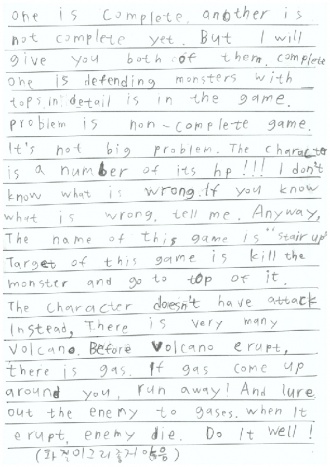 one is complete. another is
not complete yet. But I will
give you both of them. complete
one is defending monsters with
tops. in detail is in the game.
problem is non-complete game.
It's not big problem. The character
is a number of its hp!!! I don't
know what is wrong. If you know
what is wrong, tell me. Anyway,
The name of this game is "stair up"
Target of this game is kill the
monster and go to top of it.
The character doesn't have attack
Instead, There is very many
volcano. Before volcano erupt,
there is gas. If gas come up
around you, run away! And lure
out the enemy to gases. when It
erupt, enemy die. Do It well!